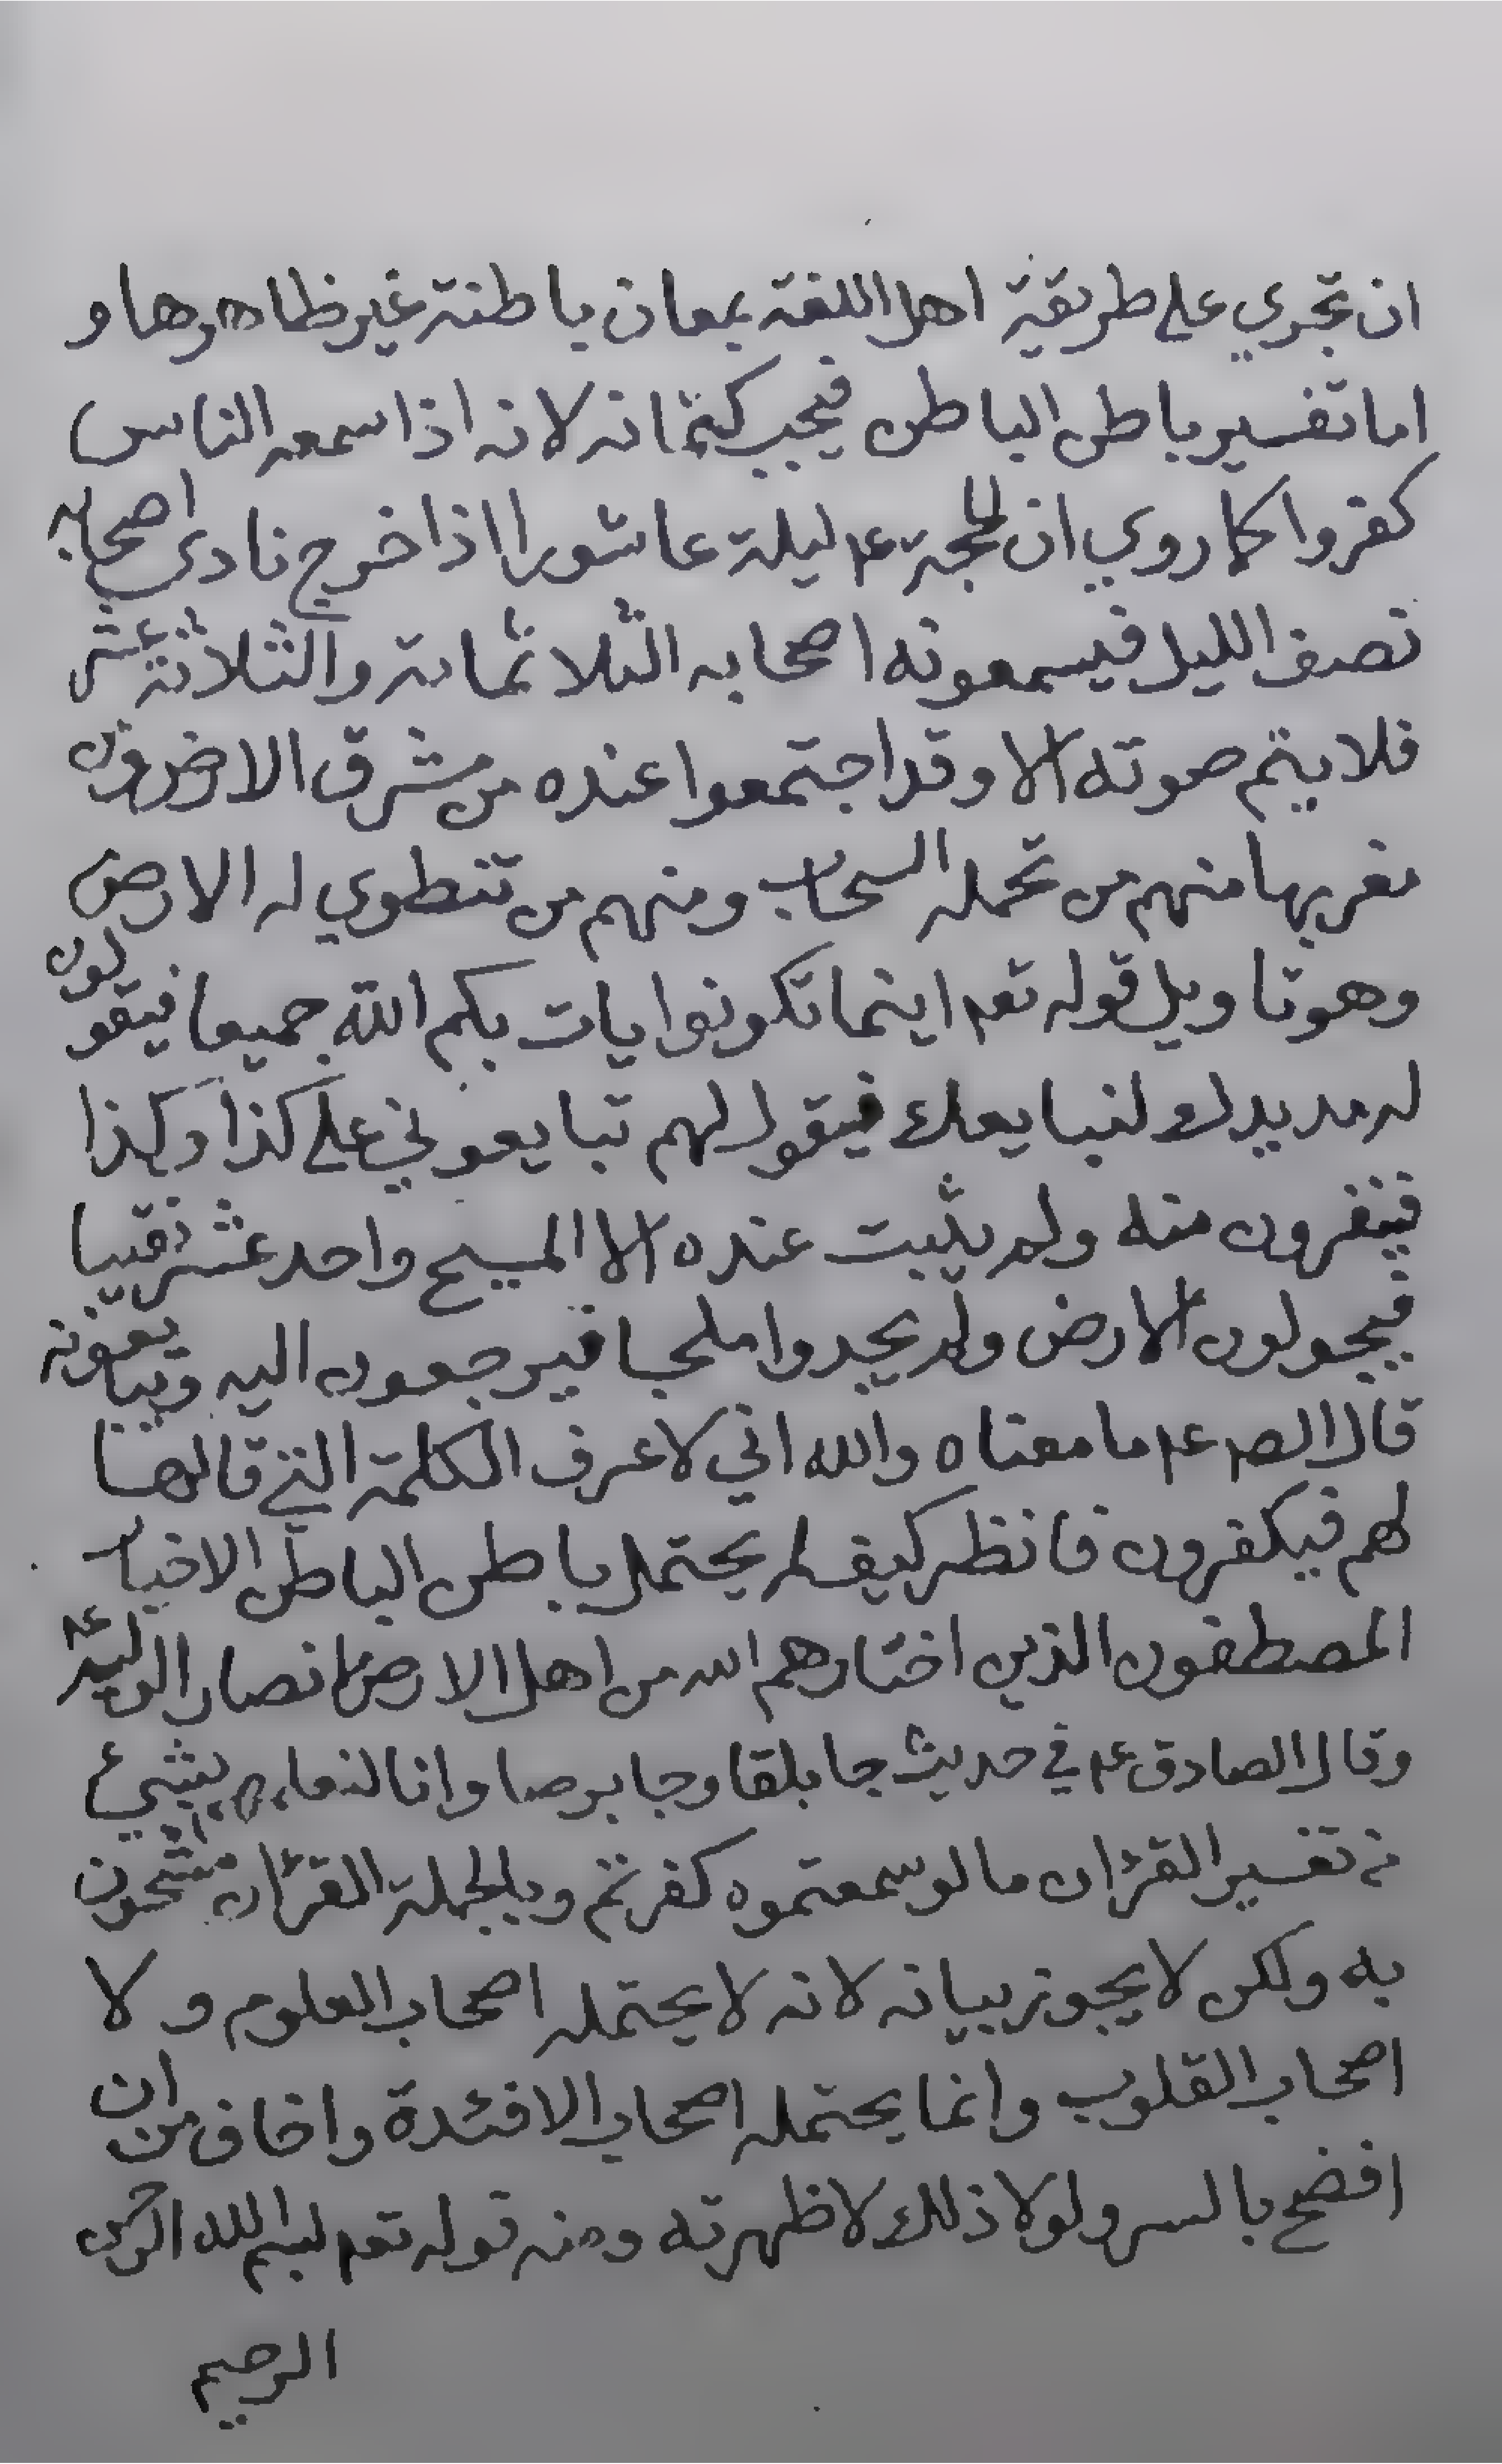 ان تجري على طريقة اهل اللغة بمعان باطنة غير ظاهرها و
اما تفسير باطن الباطن فيجب كتمانه لانه اذا سمعه الناس
كفروا كما روي ان الحجة ع۴ ليلة عاشورا اذا خرج نادى اصحابه
نصف الليل فيسمعونه اصحابه الثلاثمائة والثلاثة عشر
فلا يتم صوته الا وقد اجتمعوا عنده من مشرق الارض ومن
مغربها منهم من تحمله السحاب ومنهم من تنطوي له الارض
وهو تاويل قوله تعم اينما تكونوا يات بكم الله جميعا فيقولون
له مد يدك لنبايعك فيقول لهم تبايعوني على كذا وكذا
فينفرون منه ولم يثبت عنده الا المسيح واحد عشر نقيبا
فيجولون الارض ولم يجدوا ملجا فيرجعون اليه ويبايعونه
قال الصم ع۴ ما معناه والله اني لاعرف الكلمة التي قالها
لهم فيكفرون فانظر كيف لم يحتمل باطن الباطن الاخيار
المصطفون الذين اختارهم الله من اهل الارض انصار الوليه ع۴
وقال الصادق ع۴ في حديث جابلقا وجابرصا وانا لنعلم بشيء
من تفسير القرءان ما لو سمعتموه كفرتم وبالجملة القرءان مشحون
به ولكن لا يجوز بيانه لانه لا يحتمله اصحاب العلوم ولا
اصحاب القلوب وانما يحتمله اصحاب الافئدة واخاف من ان
افضح بالسر ولولا ذلك لاظهرته ومنه قوله تعم بسم الله الرحمن
الرحيم